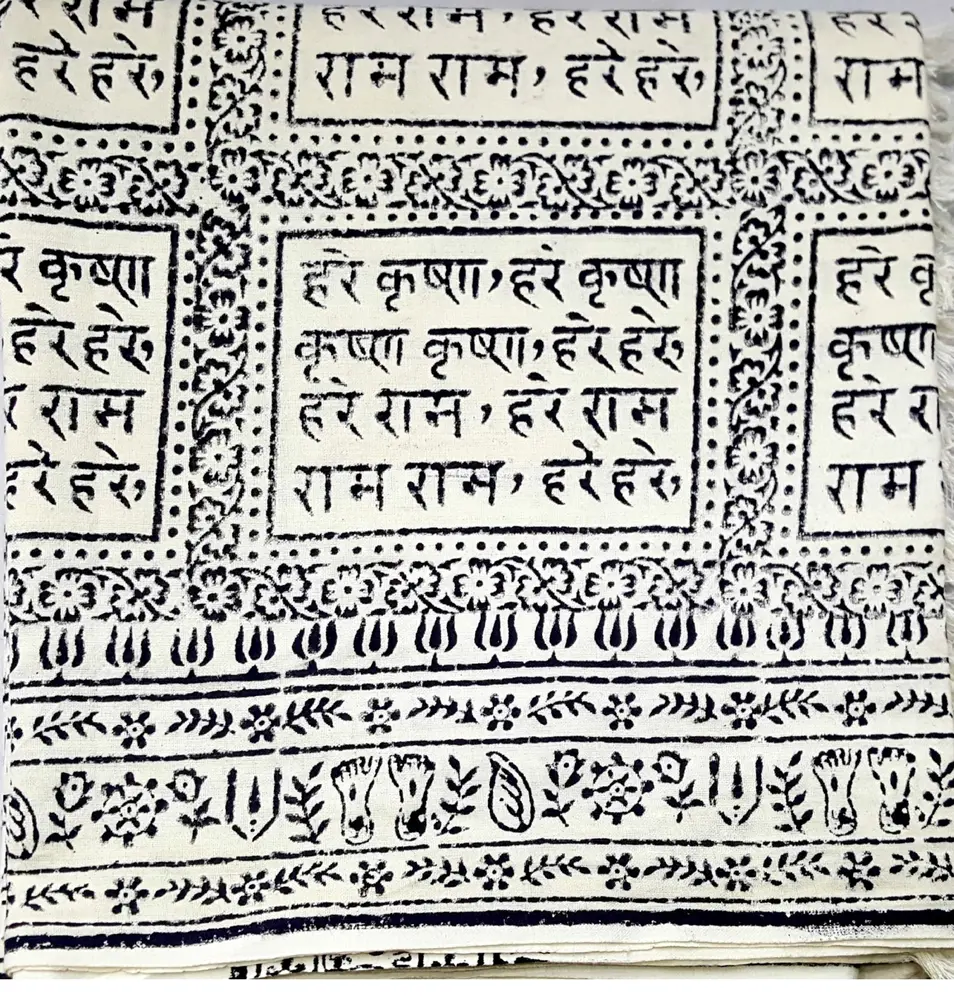 हरे राम, हरे राम
हरे हरे,
राम राम, हरे हरे,
राम
कृष्ण
हरे हरे,
राम
हरे हरे,
हरे कृष्ण, हरे कृष्ण
कृष्ण कृष्ण, हरे हरे,
हरे राम, हरे राम
राम राम, हरे हरे,
हरे
कृष्ण
हरे
राम